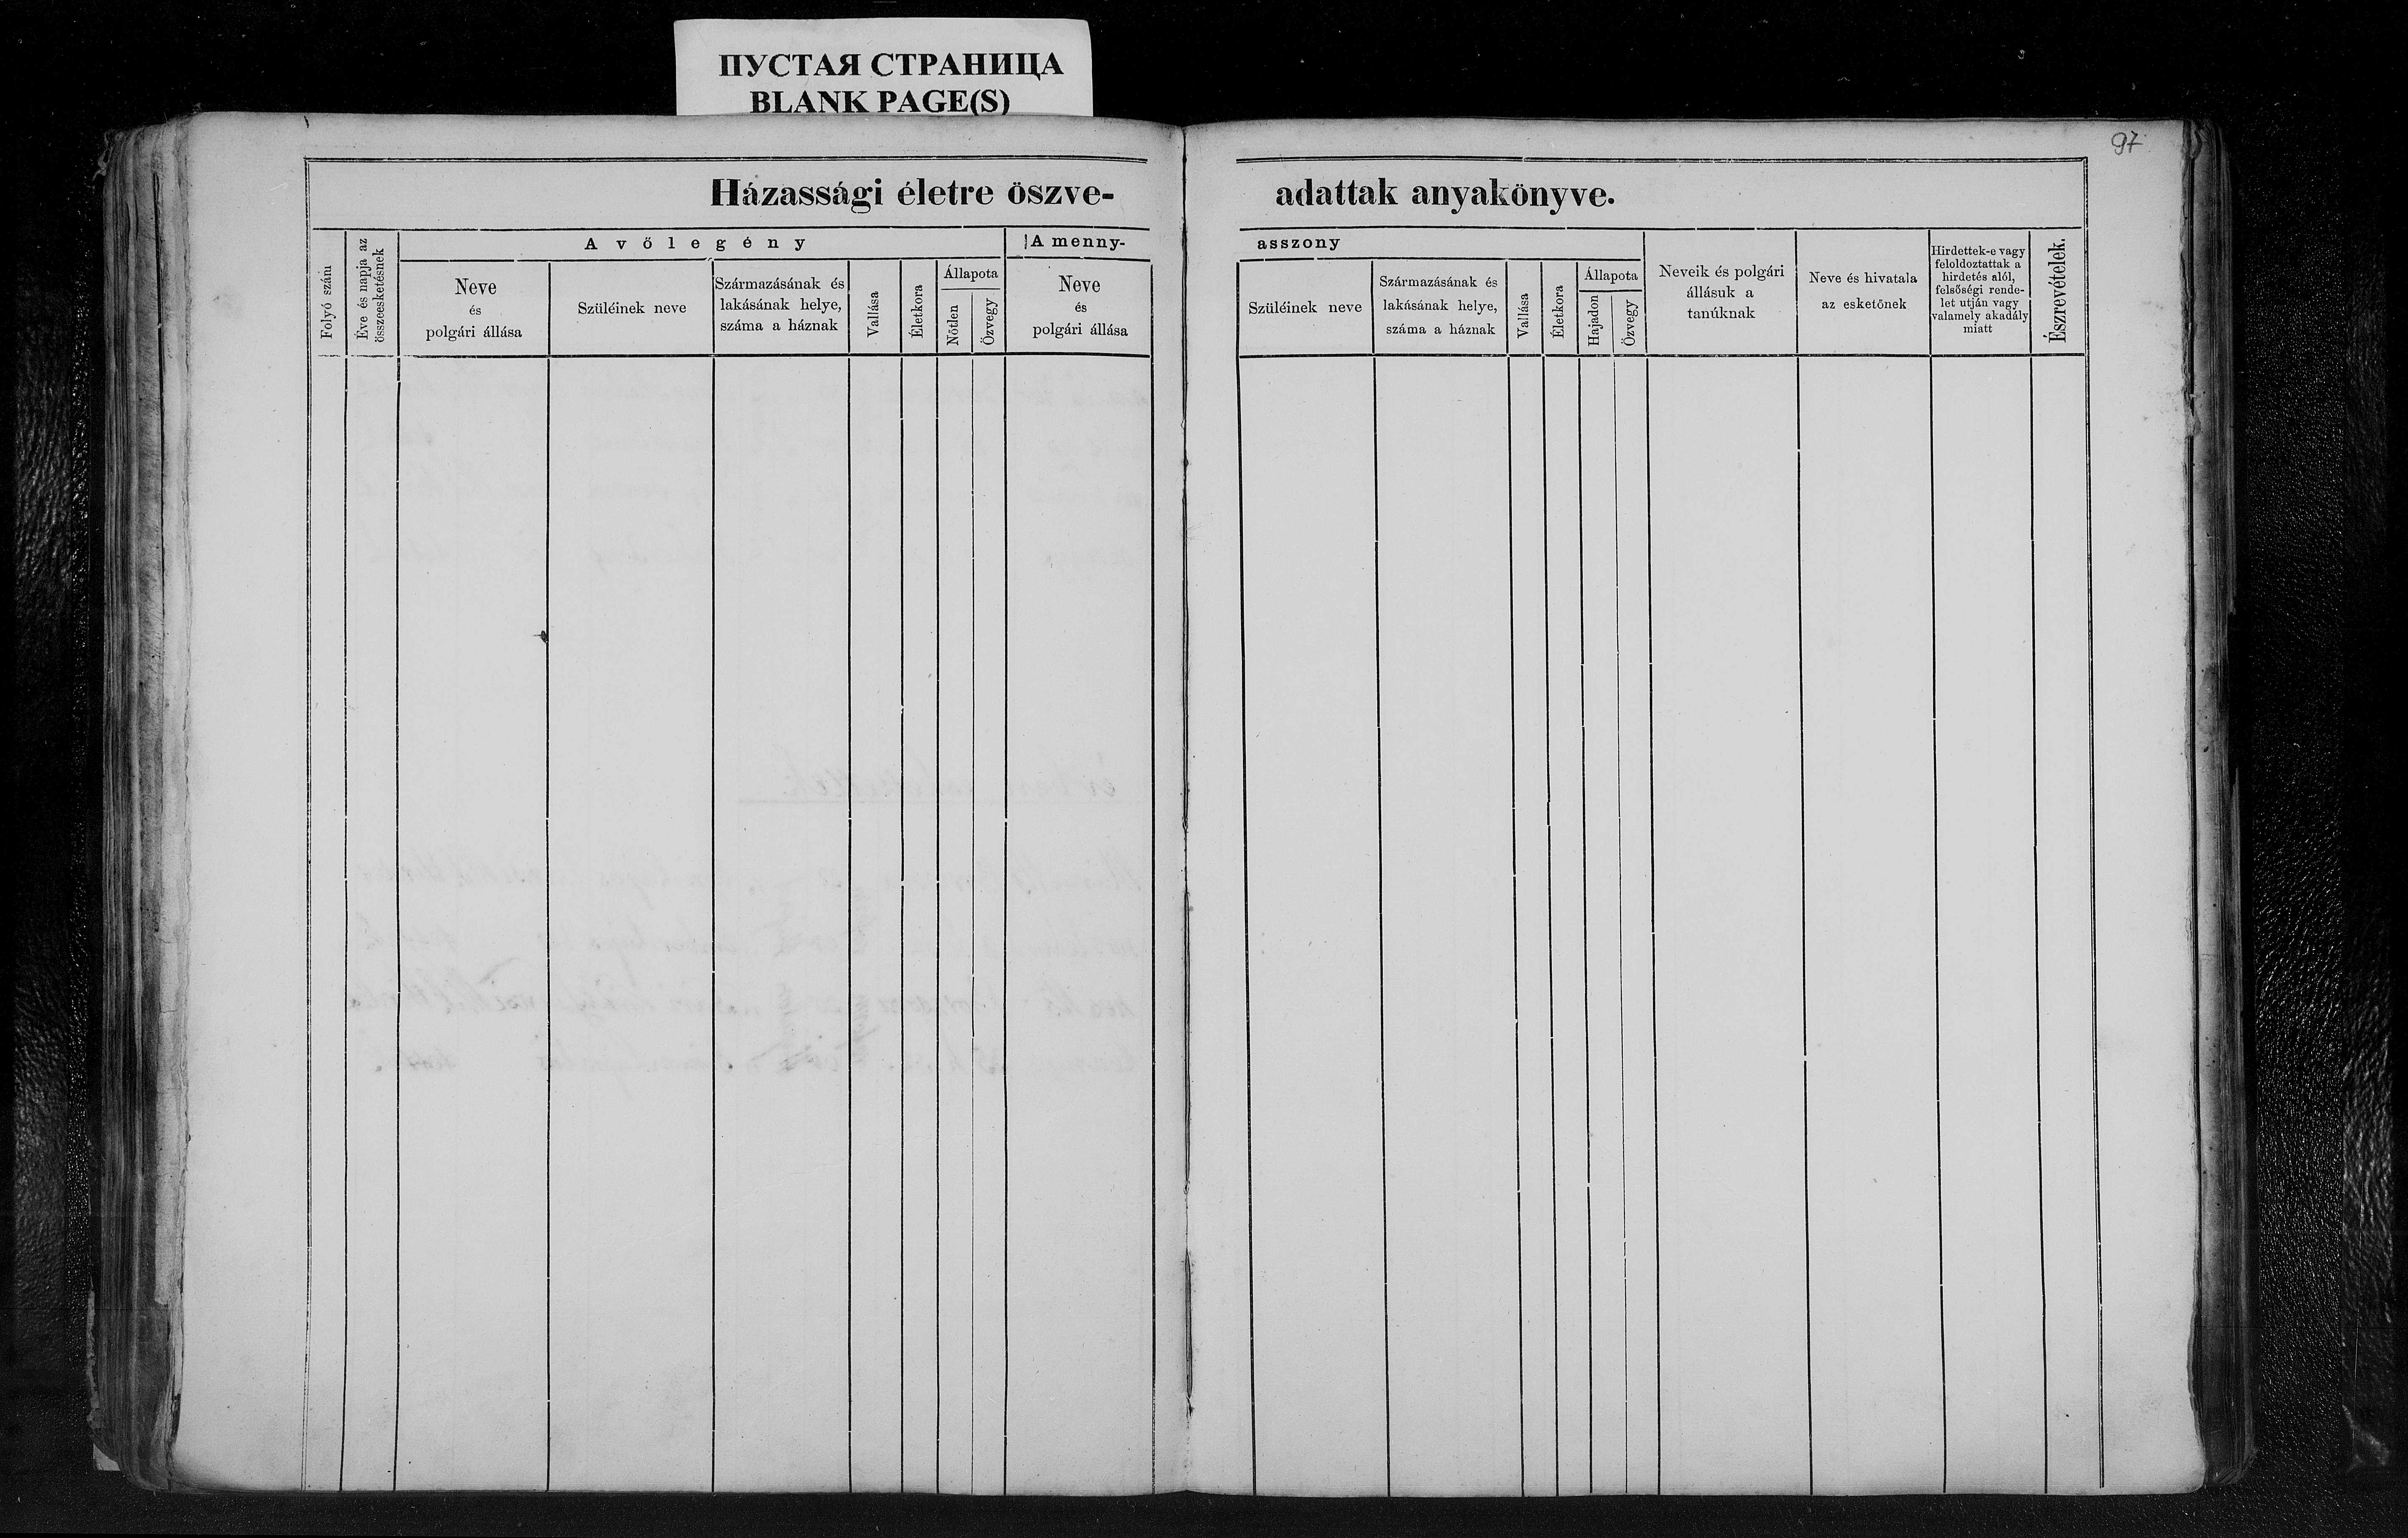 ПУСТАЯ СТРАНИЦА
BLANK PAGE(S)
97
Házassági életre öszve-
adattak anyakönyve.
Folyó szám
Éve és napja az
összeesketésnek
A vőlegény
Neve
és
polgári állása
Szüléinek neve
Származásának és
lakásának helye,
száma a háznak
Vallása
Életkora
Állapota
Nőtlen
Özvegy
A menny-
Neve
és
polgári állása
asszony
Szüléinek neve
Származásának és
lakásának helye,
száma a háznak
Vallása
Életkora
Állapota
Hajadon
Özvegy
Neveik és polgári
állásuk a
tanúknak
Neve és hivatala
az esketőnek
Hirdettek-e vagy
feloldoztattak a
hirdetés alól,
felsőségi rende-
let utján vagy
valamely akadály
miatt
Észrevételek.